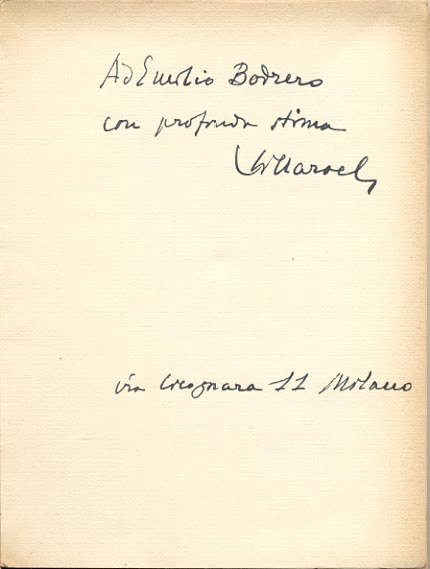 Ad Emilio Bodrero
con profonda stima
Villaroel
via Cicognara 11 Milano